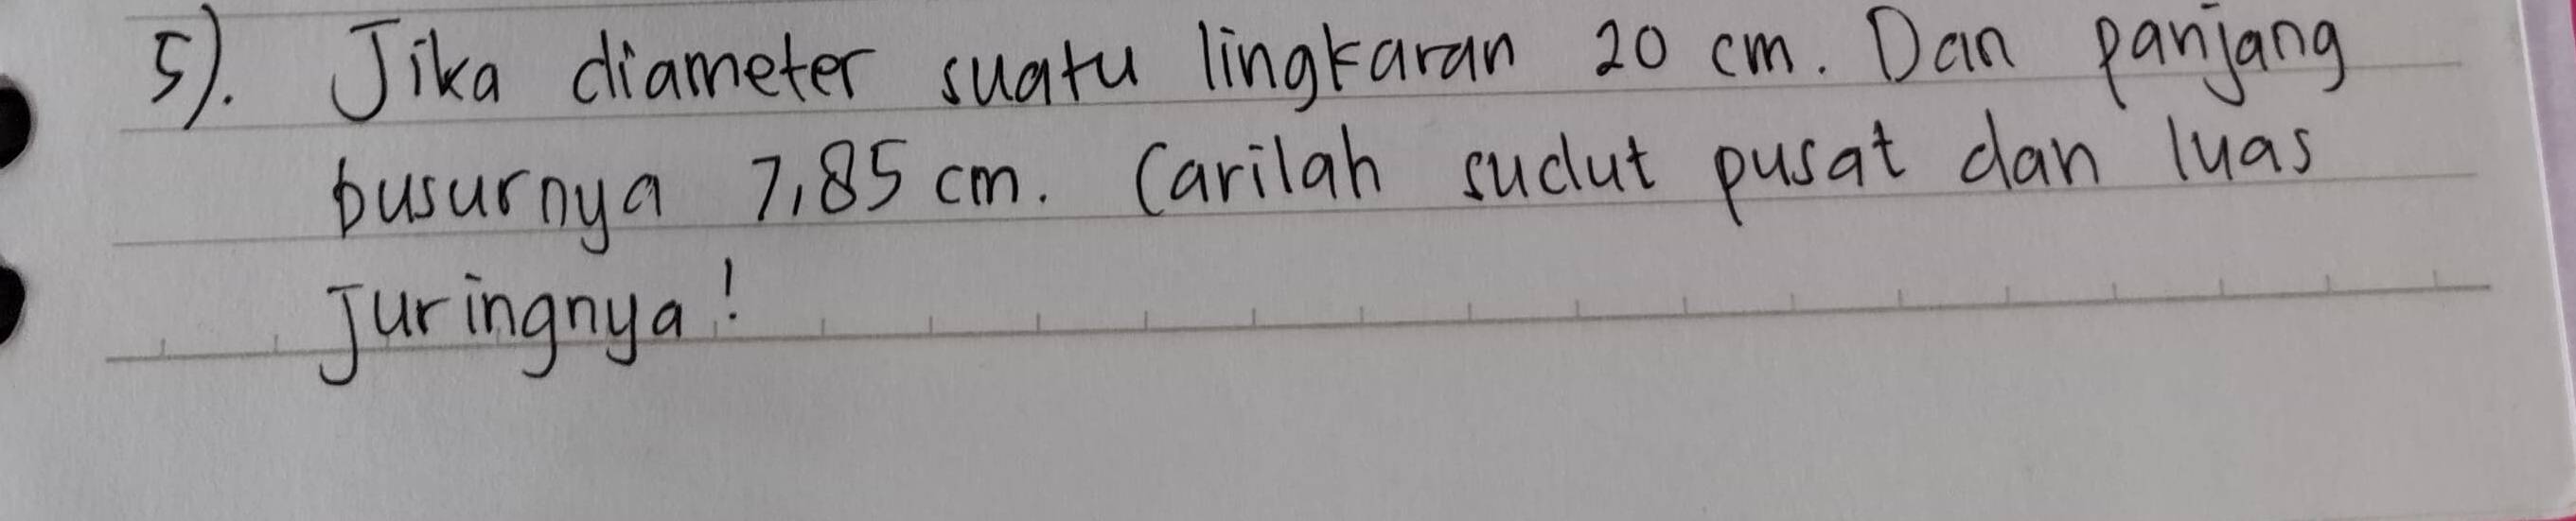 5). Jika diameter suatu lingkaran 20 cm. Dan panjang
busurnya 7,85 cm. Carilah sudut pusat dan luas
Juringnya!